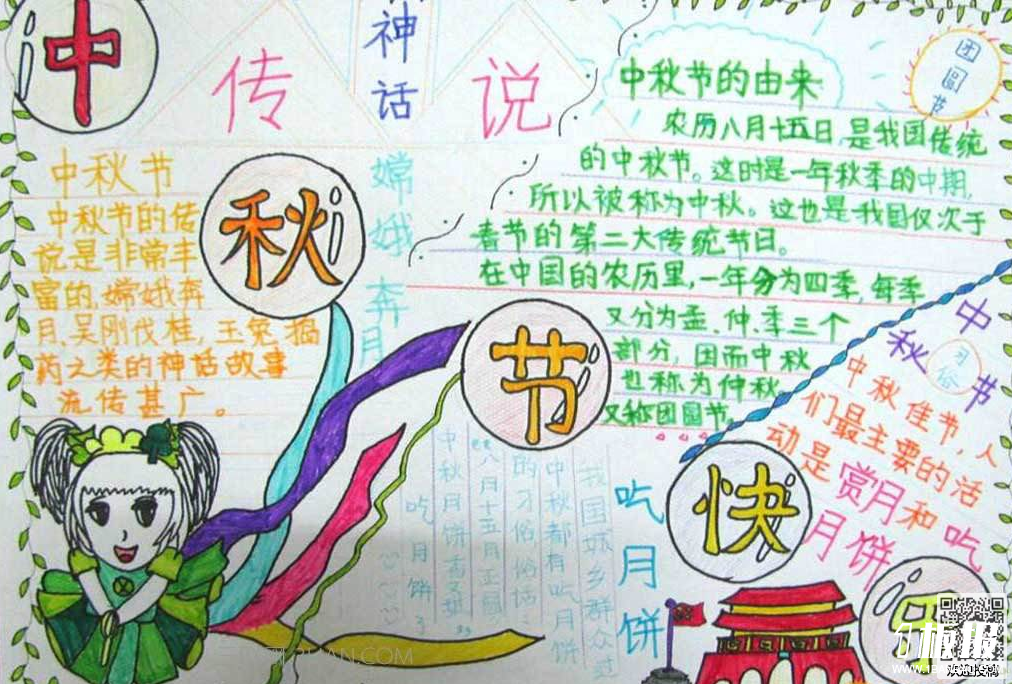 中
秋
节
快
传
神话
说
团圆节
中秋节的由来
农历八月十五日，是我国传统
的中秋节。这时是一年秋季的中期，
所以被称为中秋。这也是我国仅次于
春节的第二大传统节日。
在中国的农历里，一年分为四季，每季
又分为孟、仲、季三个
部分，因而中秋
也称为仲秋
又称团圆节。
中秋节
中秋节的传
说是非常丰
富的，嫦娥奔
月、吴刚伐桂，玉兔捣
药之类的神话故事
流传甚广。
嫦娥奔月
中秋节
习俗
中秋佳节，人
们最主要的活
动是赏月和吃
月饼
吃月饼
我国城乡群众过
中秋都有吃月饼
的习俗俗话
八月十五月正圆
中秋月饼香又甜
吃月饼
板报